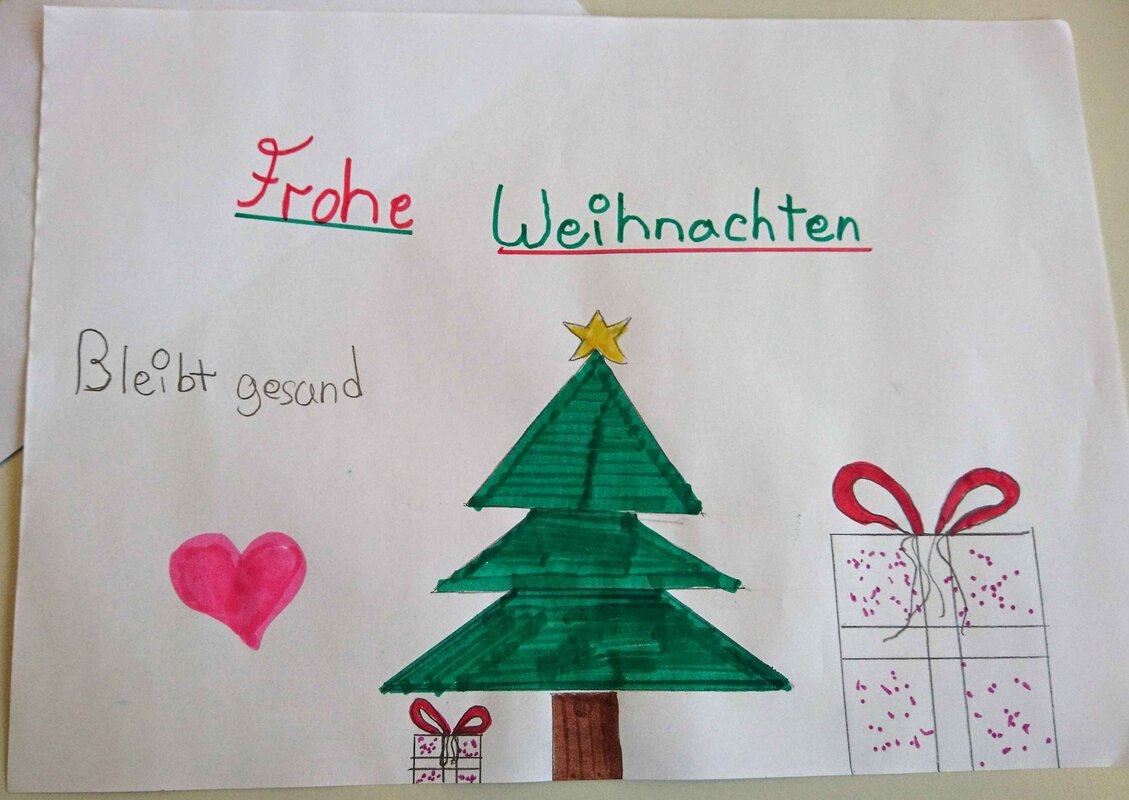 Frohe Weihnachten
Bleibt gesand